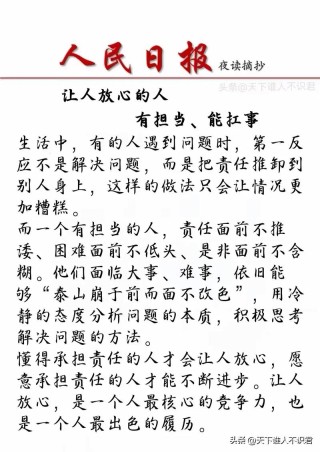 人民日报 夜读摘抄
头条@天下谁人不识君
让人放心的人
有担当、能扛事
生活中，有的人遇到问题时，第一反
应不是解决问题，而是把责任推卸到
别人身上，这样的做法只会让情况更
加糟糕。
而一个有担当的人，责任面前不推
诿、困难面前不低头、是非面前不含
糊。他们面临大事、难事，依旧能
够“泰山崩于前而面不改色”，用冷
静的态度分析问题的本质，积极思考
解决问题的方法。
懂得承担责任的人才会让人放心，愿
意承担责任的人才能不断进步。让人
放心，是一个人最核心的竞争力，也
是一个人最出色的履历。
头条@天下谁人不识君